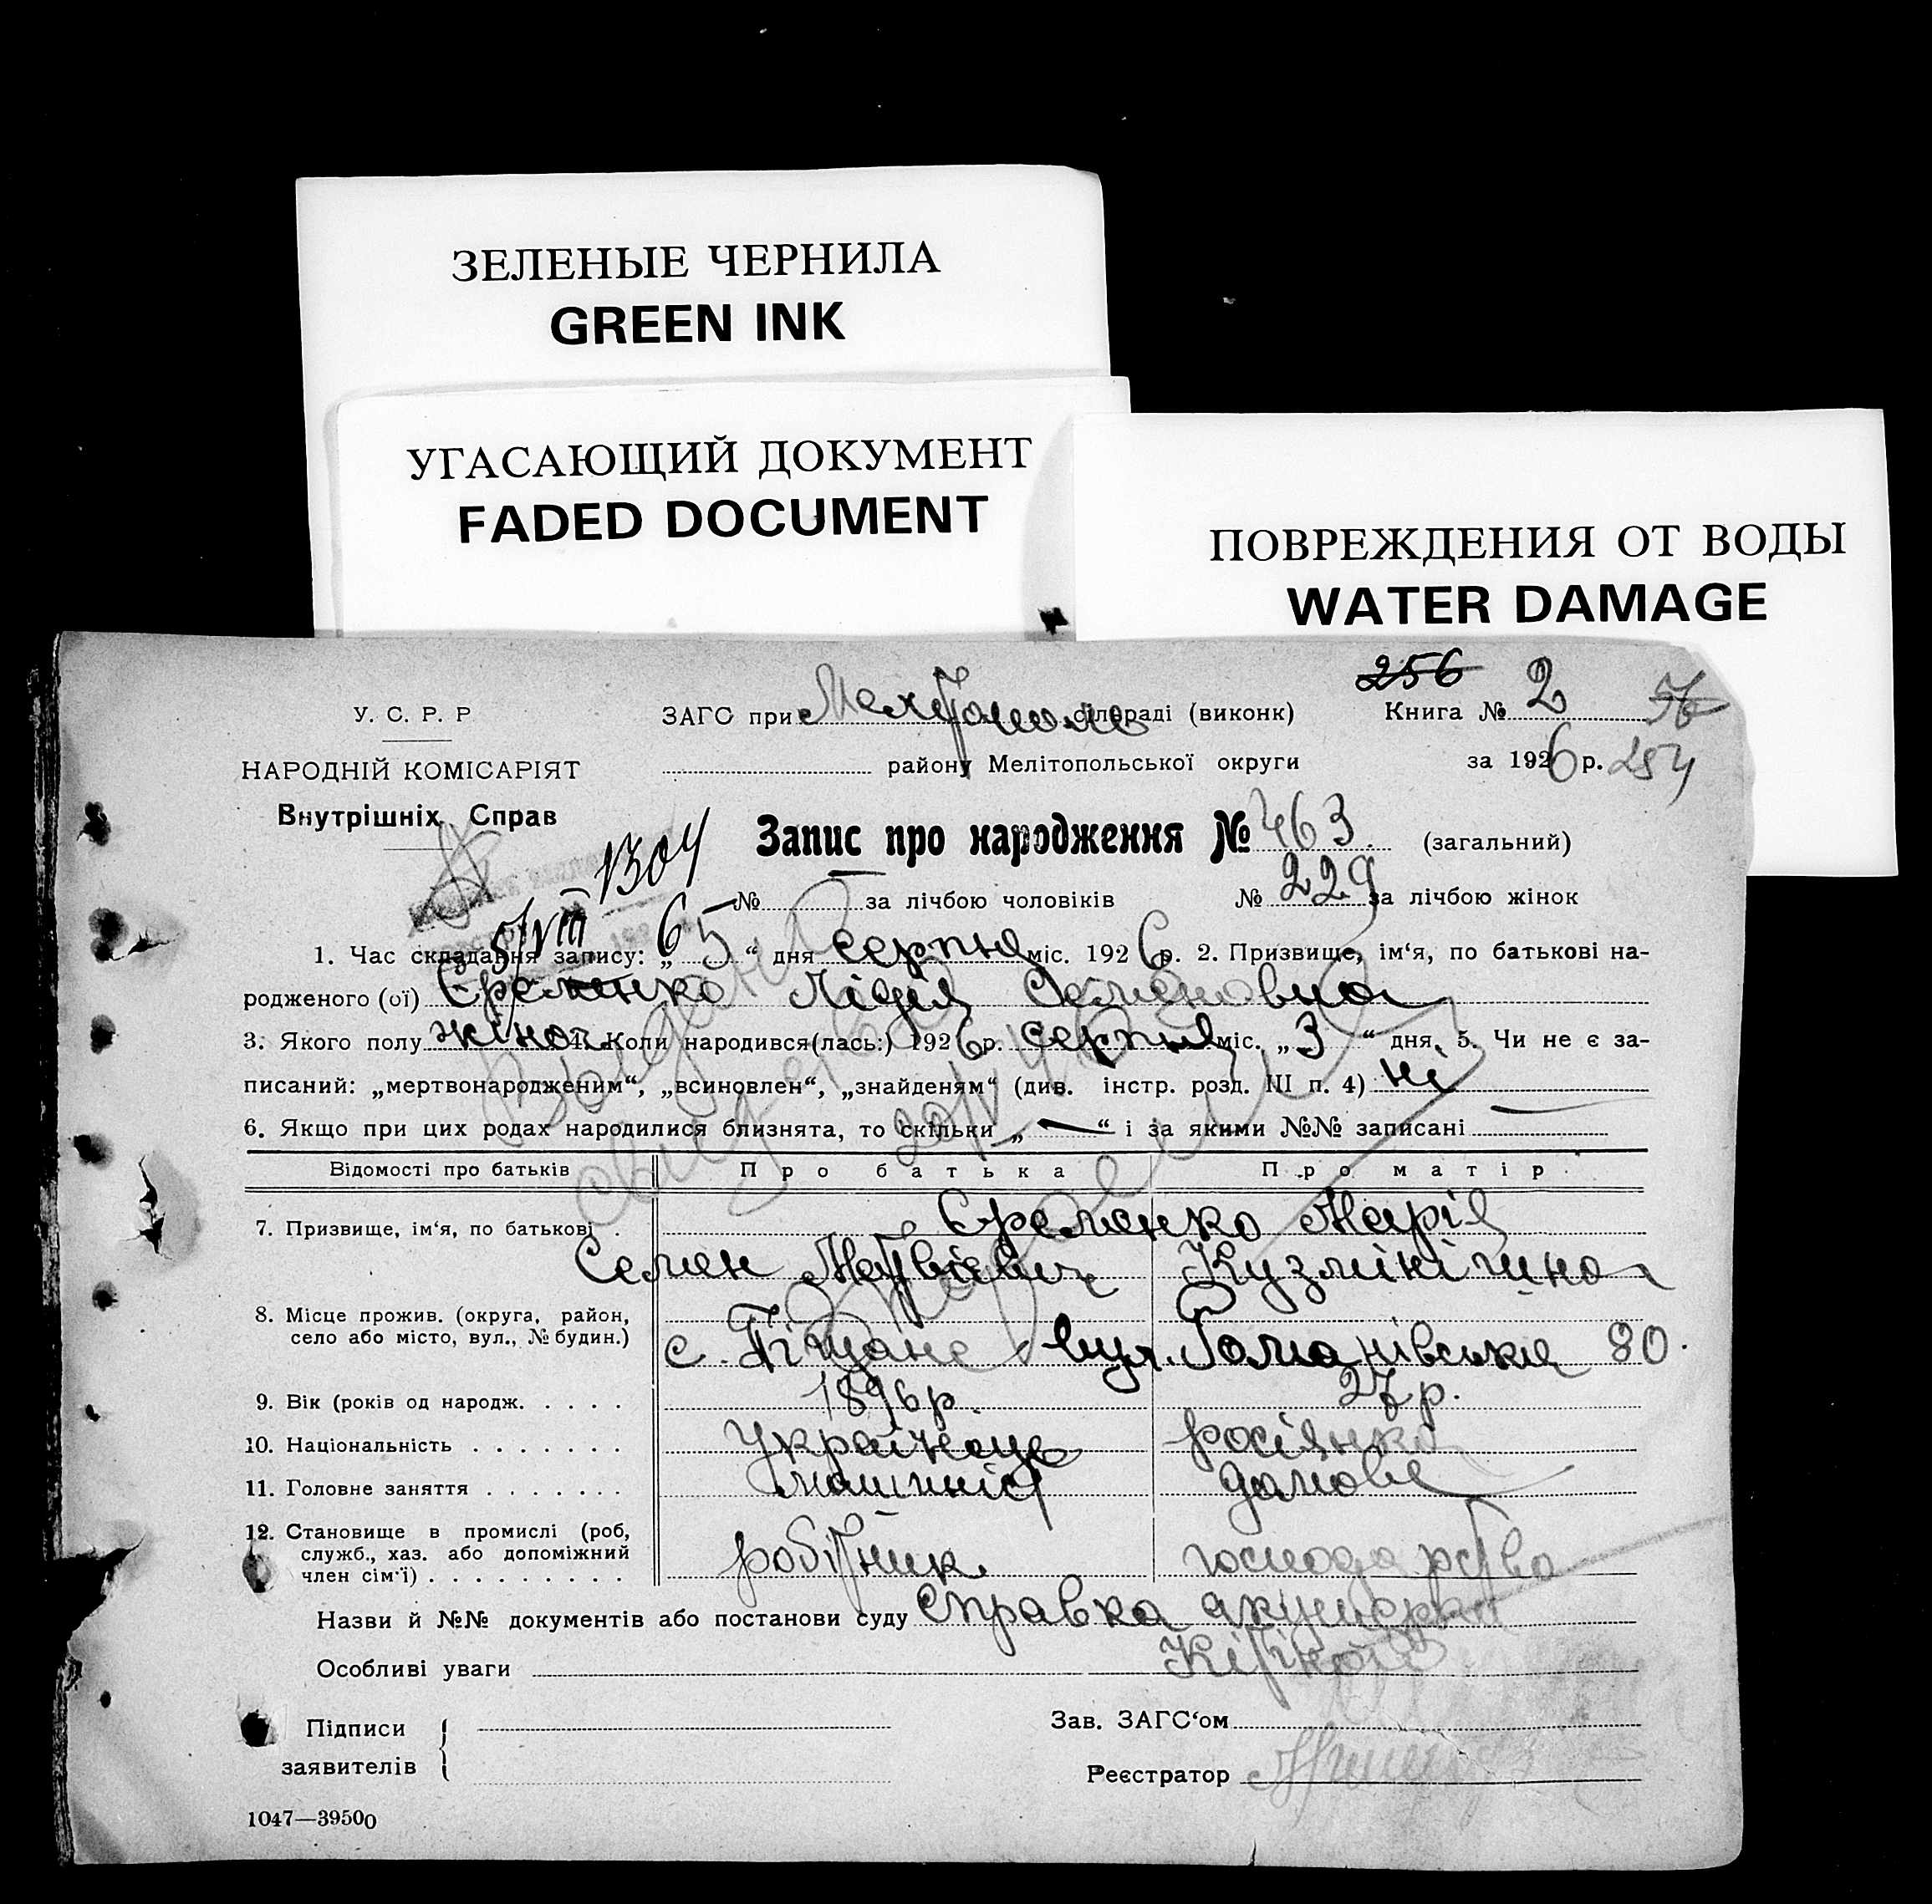 ЗЕЛЕНЫЕ ЧЕРНИЛА
GREEN INK
УГАСАЮЩИЙ ДОКУМЕНТ
FADED DOCUMENT
ПОВРЕЖДЕНИЯ ОТ ВОДЫ
WATER DAMAGE
256
У. С. Р. Р ЗАГС при сільраді (виконк) Книга № 2 56
НАРОДНІЙ КОМІСАРІЯТ району Мелітопольської округи за 1926 р. 254
Внутрішніх Справ
1304 Запис про народження № 463 (загальний)
№ — за лічбою чоловіків № 229 за лічбою жінок
5/VIII
1. Час складання запису: „ 5 “ дня серпня міс. 1926 р. 2. Призвище, ім‘я, по батькові на-
родженого (ої) Єременко Лідія Семеновна
3. Якого полу жіноч 4. Коли народився(лась:) 1926 р. серпня міс. „ 3 “ дня, 5. Чи не є за-
писаний: „мертвонародженим“, „всиновлен“, „знайденям“ (див. інстр. розд. III п. 4) ні
6. Якщо при цих родах народилися близнята, то скільки „ — “ і за якими №№ записані —
Відомості про батьків Про батька Про матір
7. Призвище, ім‘я, по батькові Єременко Марія
Семен Матвієвич Кузмінішна
8. Місце прожив. (округа, район,
село або місто, вул., № будин.) с. Піщане вул. Романівська 80.
9. Вік (років од народж. . . . . 1896 р. 27 р.
10. Національність . . . . . . . Українець росіянка
11. Головне заняття . . . . . . . машиніст домове
12. Становище в промислі (роб,
служб., хаз. або допоміжний
член сім‘ї) . . . . . . . . . робітник господарство
Назви й №№ документів або постанови суду справка акушерки
Особливі уваги
Підписи Зав. ЗАГС‘ом
заявителів Реєстратор
1047—39500